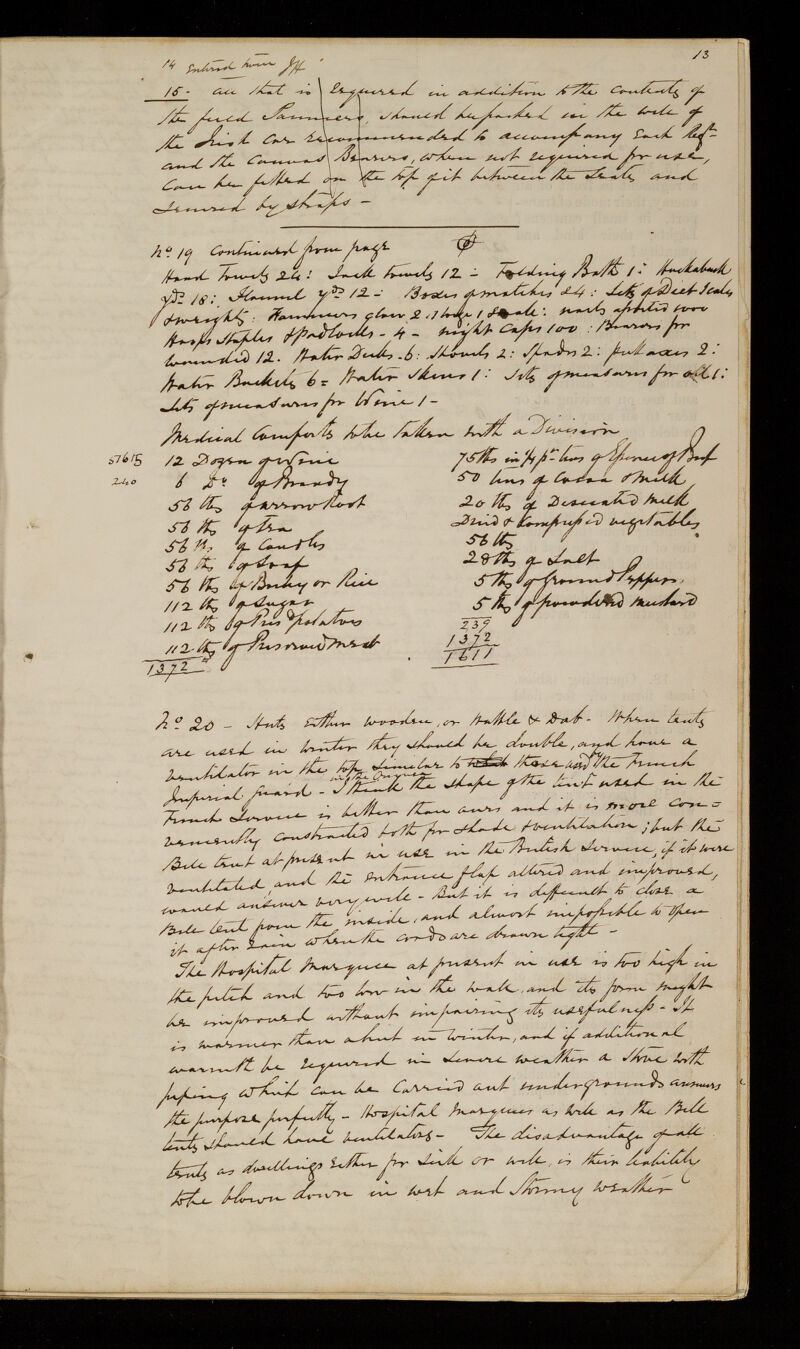 13
14 Entered from JH
15 - all that is required in addition to the contents of
the field Panniers, should be packed in the well of
the Irish Car recommended to accompany each Regt
and the Canvas Bearers, when not required for use,
can be fitted on the top fit between the seats and
secured by straps -
No. 19 continued from page
Hand Towels 24: Jack towels 12 - Folding Bath 1: Huckaback
yds 18: Flannel yds 12 - Boxes of matches 24: Sets of Diet Scales
& weights: Hammers claw 2, 1 large 1 small: nails assorted 1000
Hasps Staples & Padlocks - 4 - night Caps 100: Bearers for
wounded 12. Water Decks - 6: Shovels 2: Spades 2: pickaxes 2:
Water Buckets 6 = Water Skins 1: Sets of measures for oil 1:
Sets of measures for Wine 1 -
Medical Comforts to be taken with a Division
57615
240
12 Dozen of Wine
6 Do of Brandy
56 lbs of arrow Root
56 lbs of Tea
56 lbs of Candles
56 lbs of Soap
56 lbs of Barley or Rice
112 lbs of Sugar
112 lbs of Presd potatoes
112 lbs of Preserved meat
1372
75 lbs in 1/4 pt tins of Essence of Beef
50 tins of Cocoa & milk
20 lbs of Desicated milk
Dried & Compressed vegetables
56 lbs
28 lbs of Salt
5 lbs of Ground Peppers.
5 lbs of powdered mustard
239
1372
1611
No. 20 - Huts either wooden, or Wattle & Dab - When tents
are used in Winter they should be double, and have a
ventilator in the top similar to those used in the Crimea by the French
Imperial Guard - I think the shape of the tent used in the
French Service is better than ours and it is more con=
veniently constructed both for shade & ventilation; but the
Bell tent at present in use in the British Service, if it were
ventilated, and the entrance flap altered and improved,
would answer very well - But it is difficult to close a
Bell tent from the inside, and almost impossible to open
it after rain when the cords are drawn tight -
The Hospital Marquee at present in use is too high in
the pitch and too low in the wall, and its form might
be improved without impairing its usefulness - It
is warmer than a hut in winter, and if additional
warmth be required in severe weather a stove with
piping which can be carried out underground answers
the purpose perfectly - Hospital Marquees as well as the Bell
tents should have ventilators - The disadvantage of all
tents as dwellings either for sick or well, is their liability
to be blown down in wet and stormy weather